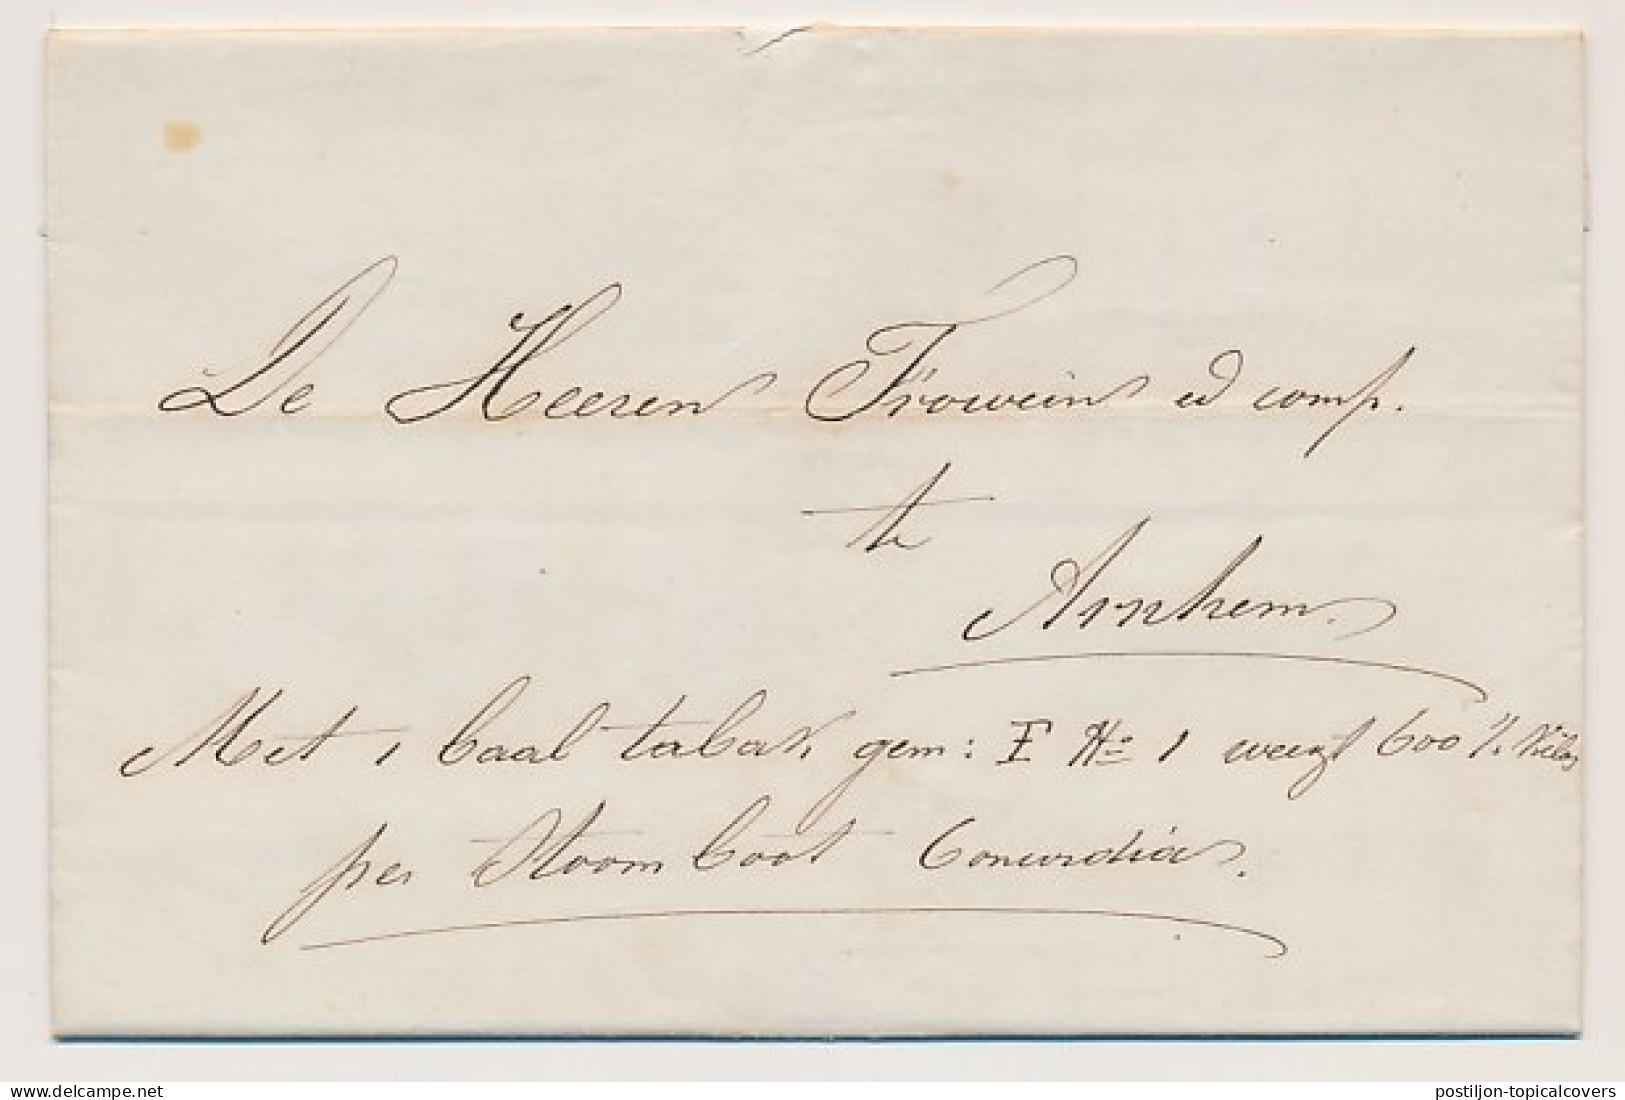 De Heeren Frowein et comp.
te
Arnhem.
Met 1 baal tabak gem: F No 1 weegt 600 Kilo
per Stoomboot Concordia.
postiljon-topicalcovers